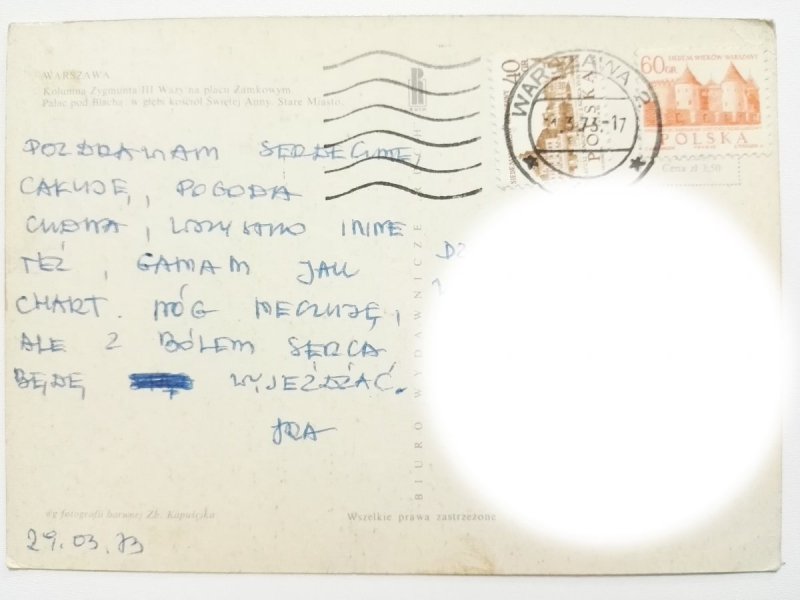 WARSZAWA
Kolumna Zygmunta III Wazy na placu Zamkowym.
Pałac pod Blachą w głębi kościół Świętej Anny. Stare Miasto.
40 GR
WARSZAWA 2
3.73.-17
POLSKA
SIEDEM WIEKÓW WARSZAWY
60 GR
POLSKA
Cena zł 3,50
POZDRAWIAM SERDECZNIE
CAŁUJĘ, POGODA
CUDNA, WSZYSTKO INNE
TEŻ, GANIAM JAK
CHART. NÓG NIE CZUJĘ,
ALE Z BÓLEM SERCA
BĘDĘ WYJEŻDŻAĆ.
BIURO WYDAWNICZE RUCH
wg fotografii barwnej Zb. Kapuścika
Wszelkie prawa zastrzeżone
29.03.73